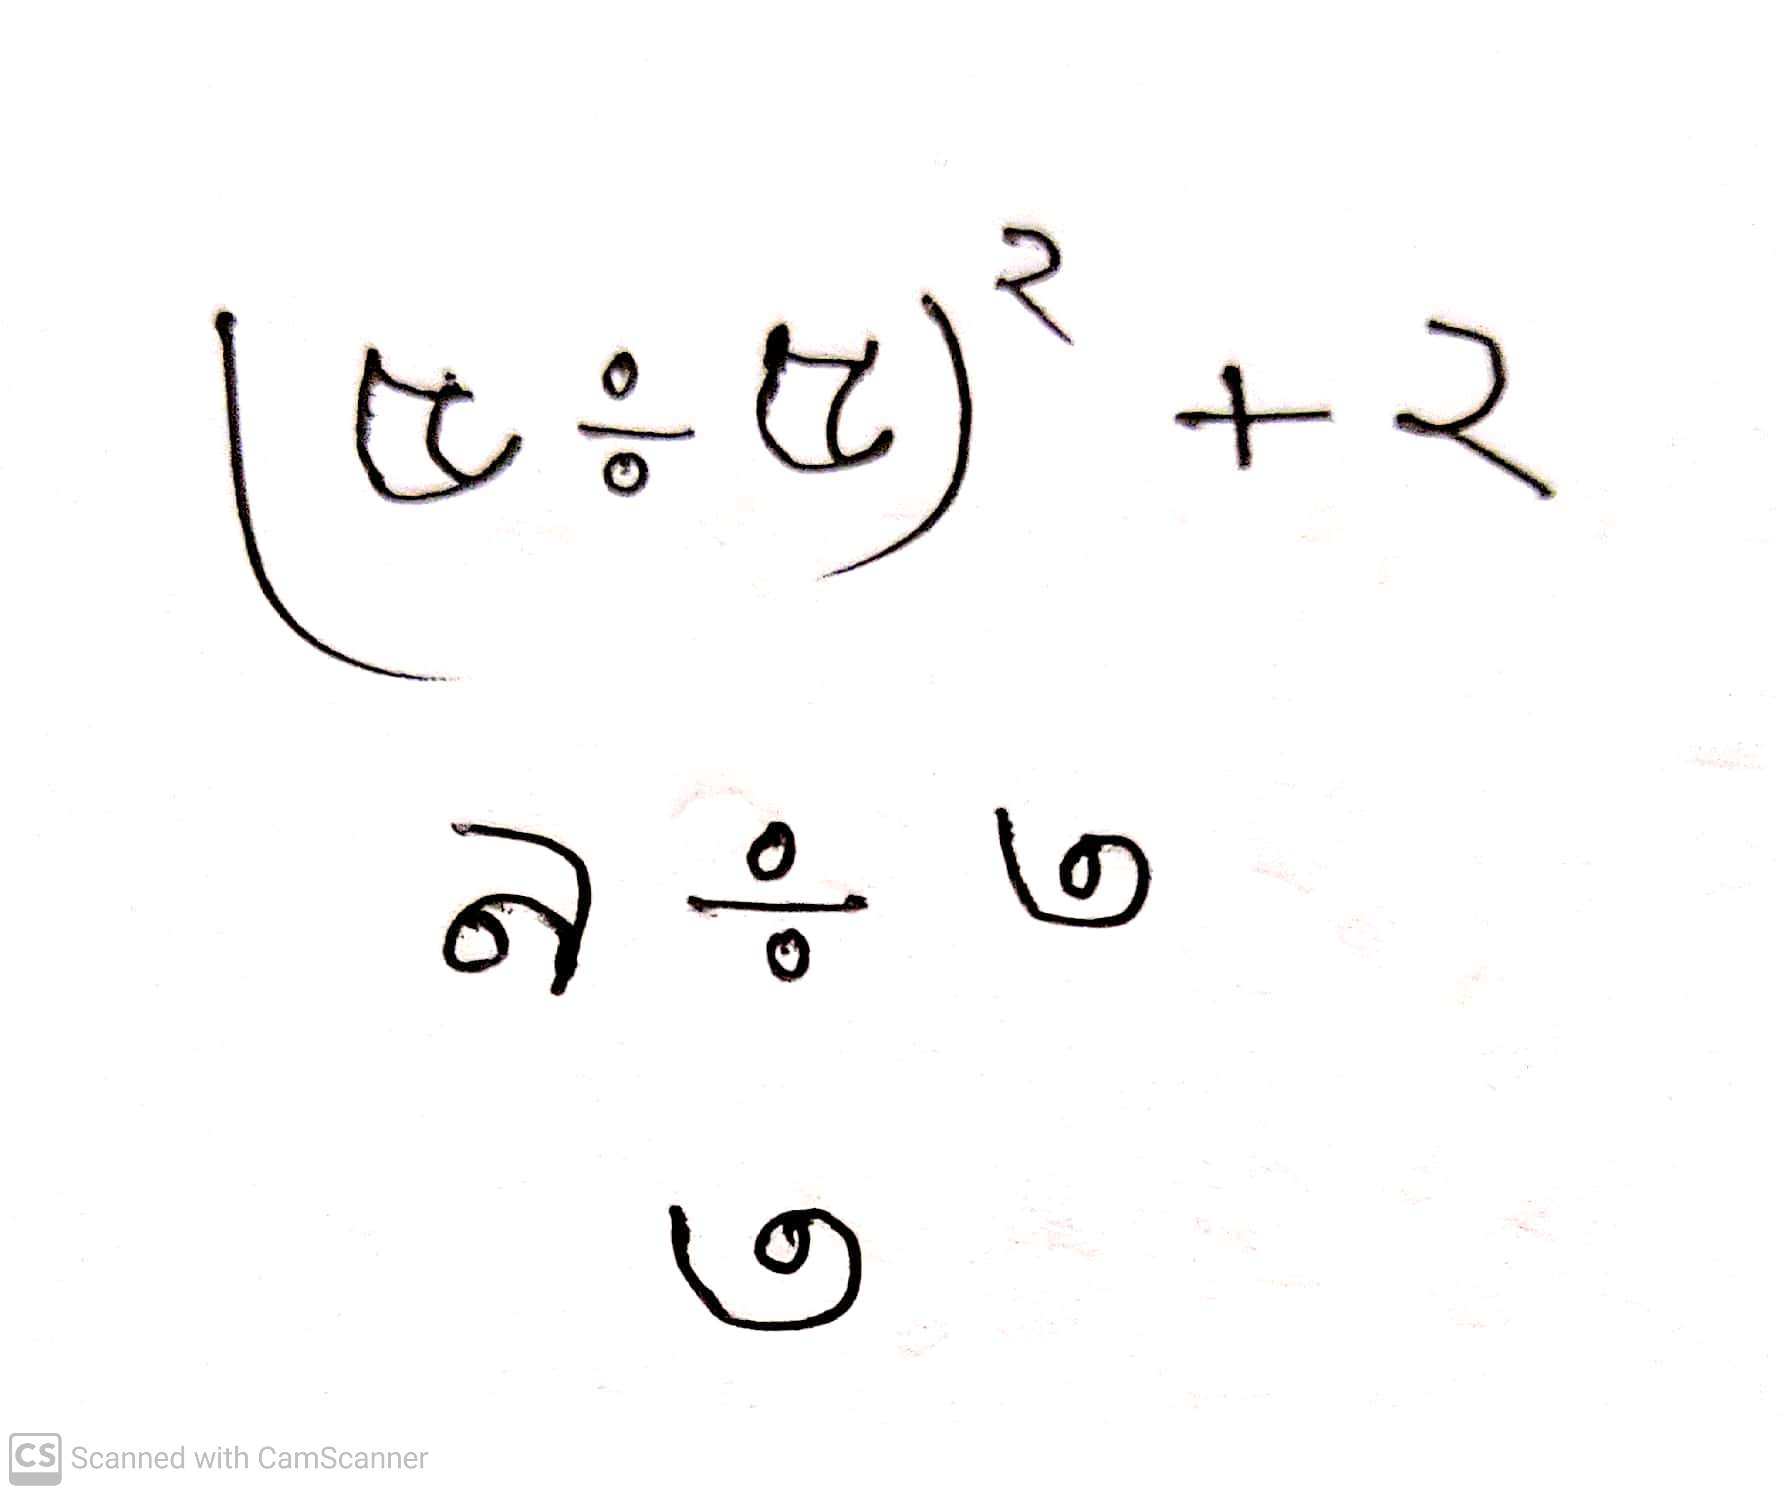 (৫ ÷ ৫)^২ + ২
৯ ÷ ৩
৩
CS Scanned with CamScanner